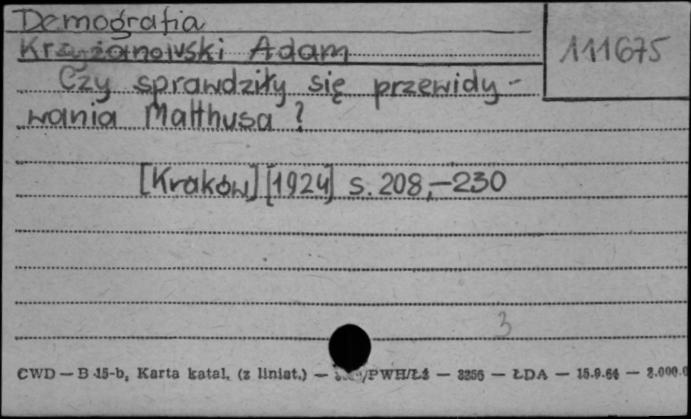 Demografia
111675
Krzyżanowski Adam
Czy sprawdziły się przewidy-
wania Malthusa ?
[Kraków] [1924] s. 208,-230
3
CWD — B 15-b, Karta katal. (z liniat.) — /PWH/Łż — 3256 — ŁDA — 15.9.64 — 2.000.0